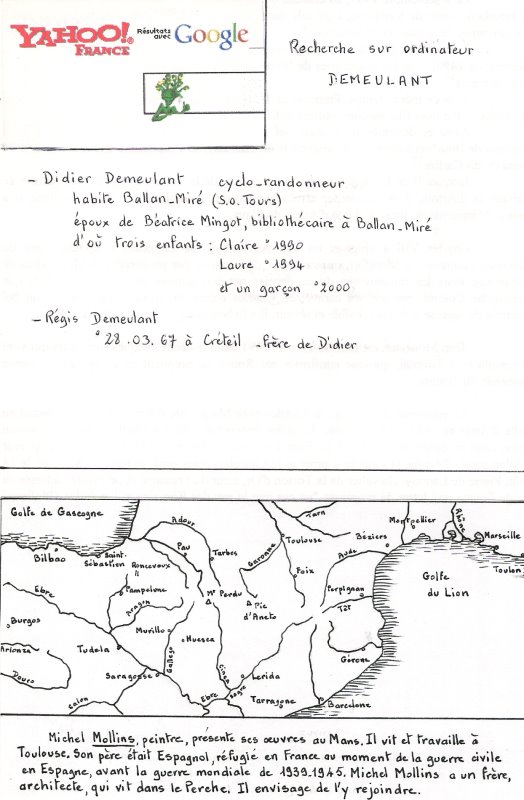 YAHOO!
FRANCE
Résultats
avec
Google
Recherche sur ordinateur
DEMEULANT
- Didier Demeulant cyclo-randonneur
habite Ballan-Miré (S.O. Tours)
époux de Béatrice Mingot, bibliothécaire à Ballan-Miré
d'où trois enfants : Claire ° 1990
Laure ° 1994
et un garçon ° 2000
- Régis Demeulant
° 28.03.67 à Créteil - frère de Didier
Golfe de Gascogne
Adour
Tarn
Montpellier
Rhône
Marseille
Toulon
Bilbao
Saint-
Sébastien
Roncevaux
Pau
Tarbes
Garonne
Toulouse
Aude
Béziers
Golfe
du Lion
Foix
Perpignan
Têt
Ebre
Pampelune
Aragon
Mt Perdu
Pic
d'Aneto
Burgos
Arlanza
Douro
Tudela
Murillo
Huesca
Gallego
Cinca
Gérone
Saragosse
Jalon
Ebre
Segre
Lerida
Tarragone
Barcelone
Michel Mollins, peintre, présente ses œuvres au Mans. Il vit et travaille à
Toulouse. Son père était Espagnol, réfugié en France au moment de la guerre civile
en Espagne, avant la guerre mondiale de 1939-1945. Michel Mollins a un frère,
architecte, qui vit dans le Perche. Il envisage de l'y rejoindre.